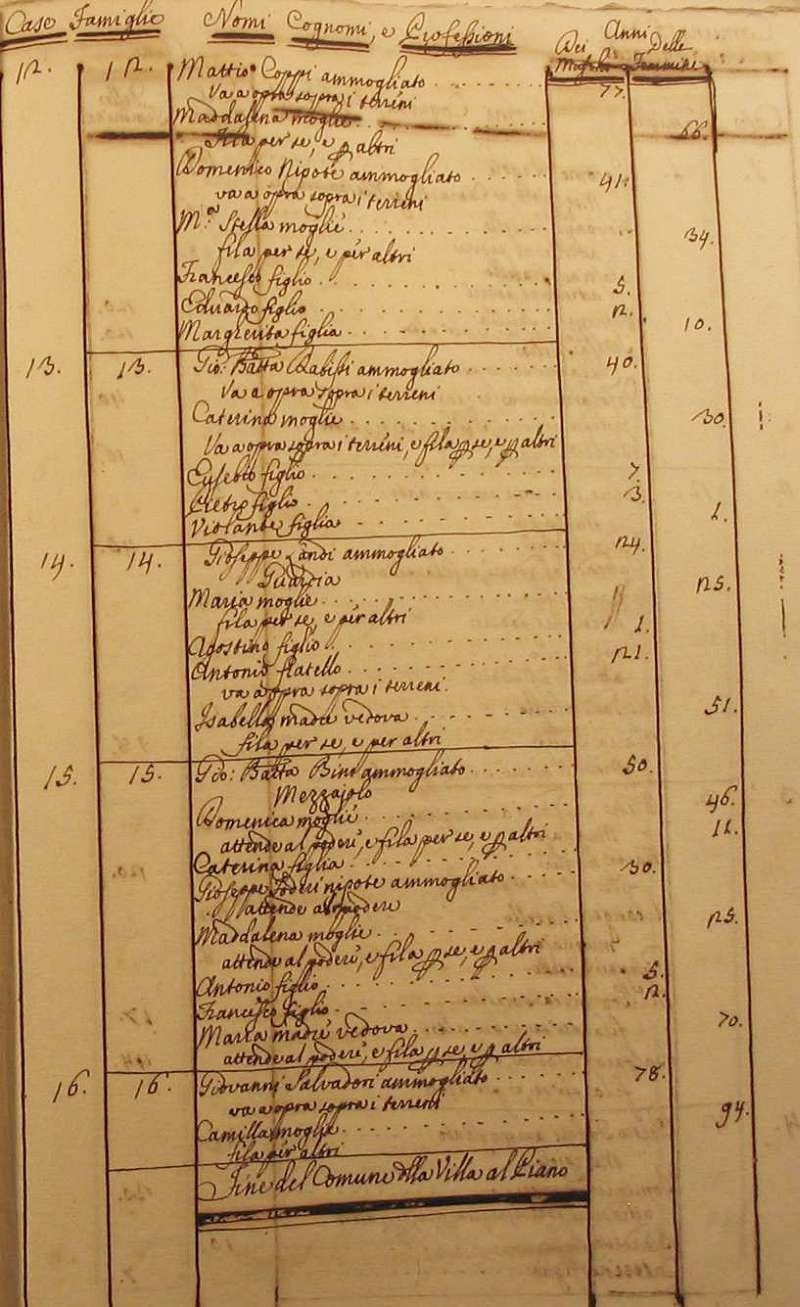 Case Famiglie Nomi Cognomi, e Professioni Anni
Dei Maschi Delle Femmine
12. 12. Mattio Coppi ammogliato 77.
Va a opra sopra i terreni
Maddalena moglie 66.
Fila per se, e p altri
Domenico Nipote ammogliato 41.
va a opra sopra i terreni
M.a Stella moglie 34.
fila per se, e per altri
Francesco figlio 5.
Eduardo figlio 2.
Margherita figlia 10.
13. 13. Gio: Batta Rabissi ammogliato 40.
Va a opra sopra i terreni
Caterina moglie 30.
Va a opra sopra i terreni, e fila p se, e p altri
Eusebio figlio 7.
Pietro figlio 3.
Violante figlia 1.
14. 14. Gioseppe Landi ammogliato 24.
Guardia
Maria moglie 25.
fila per se, e per altri
Agostino figlio 1.
Antonio fratello 21.
va a opra sopra i terreni.
Isabella madre vedova 51.
fila per se, e per altri
15. 15. Gio: Batta Bini ammogliato 50.
Mezzajolo
Domenica moglie 46.
attende al podere, e fila per se, e p altri
Caterina figlia 11.
Gioseppe Poderi nipote ammogliato 30.
attende al podere
Maddalena moglie 25.
attende al podere, e fila p se, e p altri
Antonio figlio 5.
Francesco figlio 2.
Maria madre vedova 70.
attende al podere, e fila p se, e p altri
16. 16. Giovanni Salvadori ammogliato 78.
va a opra sopra i terreni
Camilla moglie 94.
fila per altri
Fine del Comune della Villa al Piano